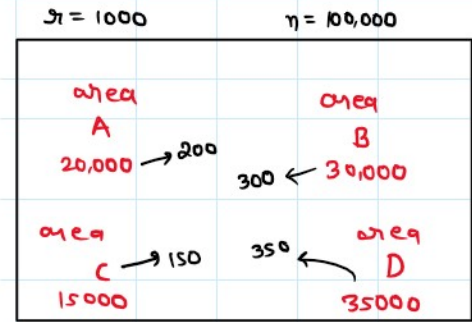 r = 1000
n = 100,000
area
A
20,000 → 200
area
B
300 ← 30,000
area
C → 150
15000
area
350 ← D
35000